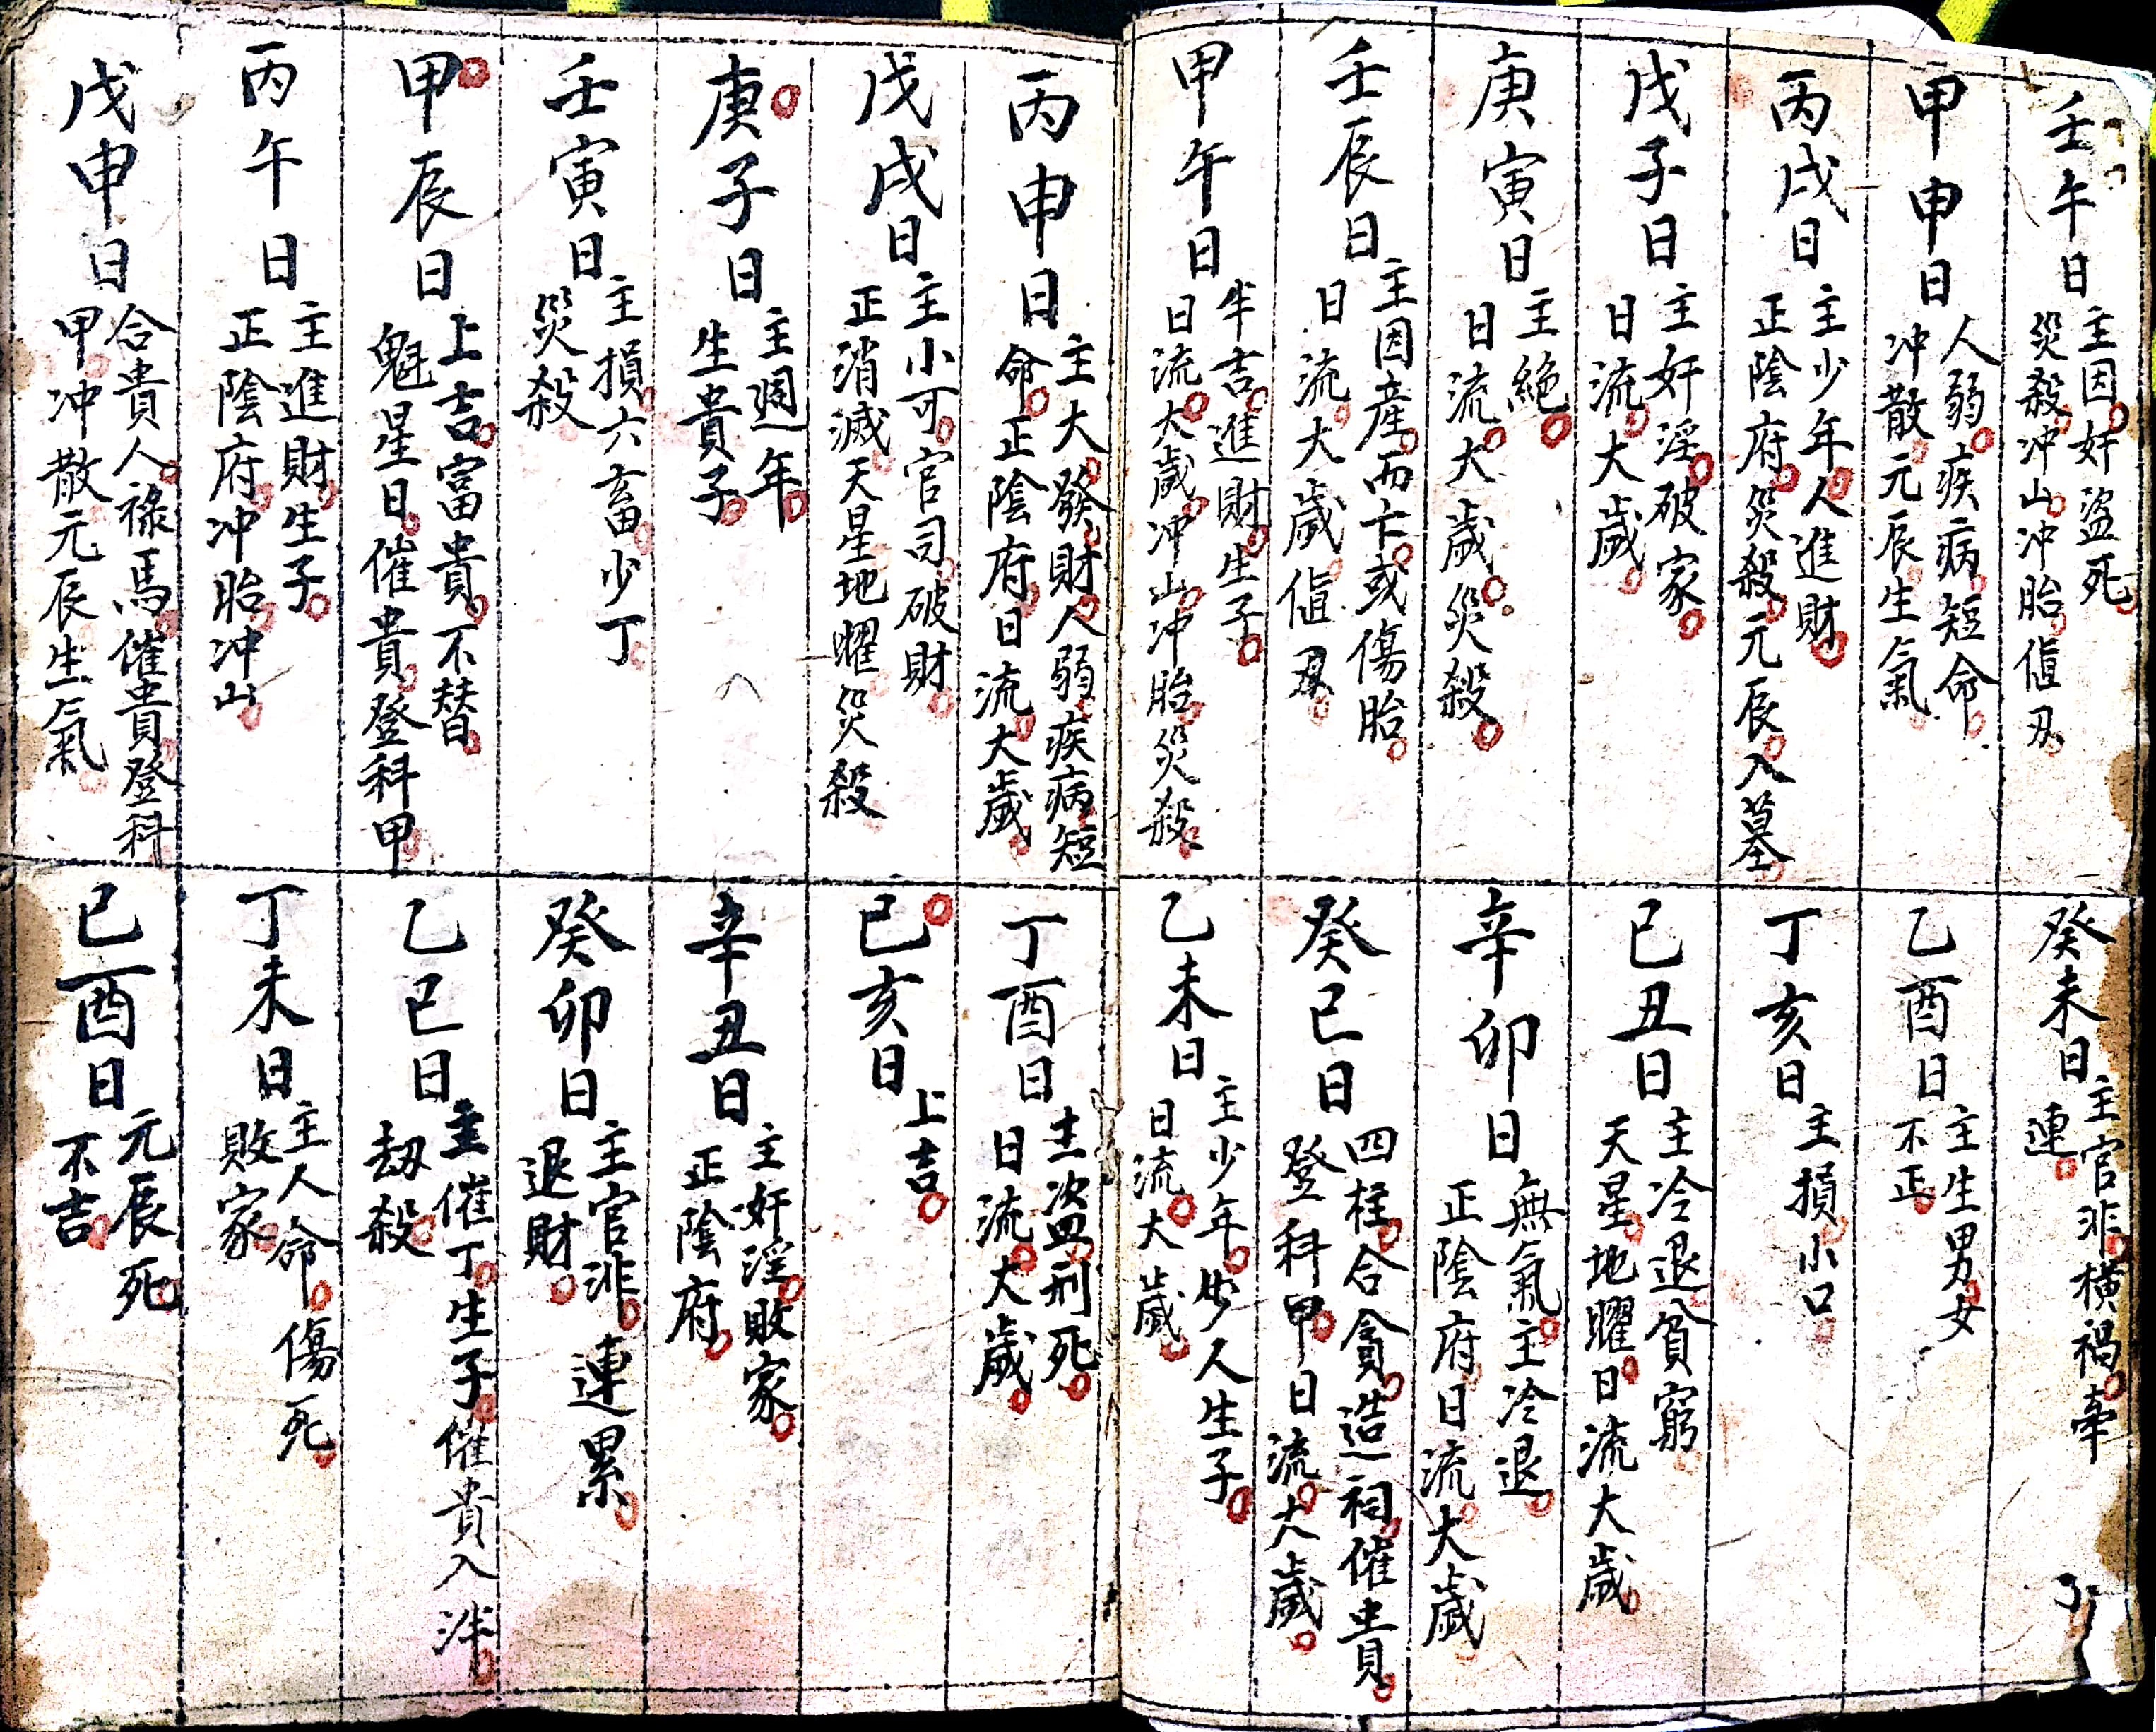 壬午日主因奸盜死
災殺冲山冲胎值刃
癸未日主官非橫禍牽
連
甲申日人弱疾病短命
冲散元辰生氣
乙酉日主生男女
不正
丙戌日主少年人進財
正陰府災殺元辰入墓
丁亥日主損小口
戊子日主奸淫破家
日流大歲
己丑日主冷退貧窮
天星地曜日流大歲
庚寅日主絕
日流大歲災殺
辛卯日無氣主冷退
正陰府日流大歲
壬辰日主因産而亡或傷胎
日流大歲值刃
癸巳日四柱合貪造祠催貴
登科甲日流大歲
甲午日半吉進財生子
日流大歲冲山冲胎災殺
乙未日主少年少人生子
日流大歲
丙申日主大發財人弱疾病短
命正陰府日流大歲
丁酉日主盗刑死
日流大歲
戊戌日主小可官司破財
正消滅天星地曜災殺
己亥日上吉
庚子日主週年
生貴子
辛丑日主奸淫敗家
正陰府
壬寅日主損六畜少丁
災殺
癸卯日主官非連累
退財
甲辰日上吉富貴不替
魁星日催貴登科甲
乙巳日主催丁生子催貴入泮
劫殺
丙午日主進財生子
正陰府冲胎冲山
丁未日主人命傷死
敗家
戊申日合貴人祿馬催貴登科
甲冲散元辰生氣
己酉日元辰死
不吉